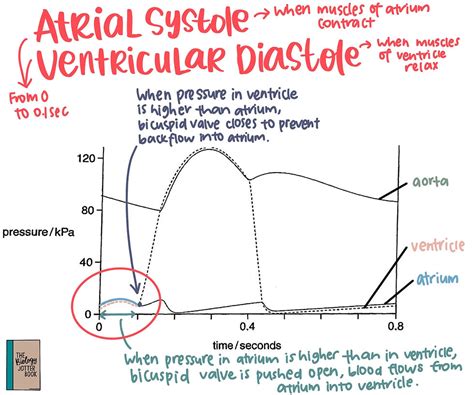 ATRIAL SYSTOLE → when muscles of atrium
contract
VENTRICULAR DIASTOLE → when muscles
of ventricle
relax
From 0
to 0.1sec
When pressure in ventricle
is higher than atrium,
bicuspid valve closes to prevent
backflow into atrium.
120
aorta
80
pressure/kPa
ventricle
40
atrium
0
0
0.4
0.8
time/seconds
When pressure in atrium is higher than in ventricle,
bicuspid valve is pushed open, blood flows from
atrium into ventricle.
THE
Biology
JOTTER
BOOK